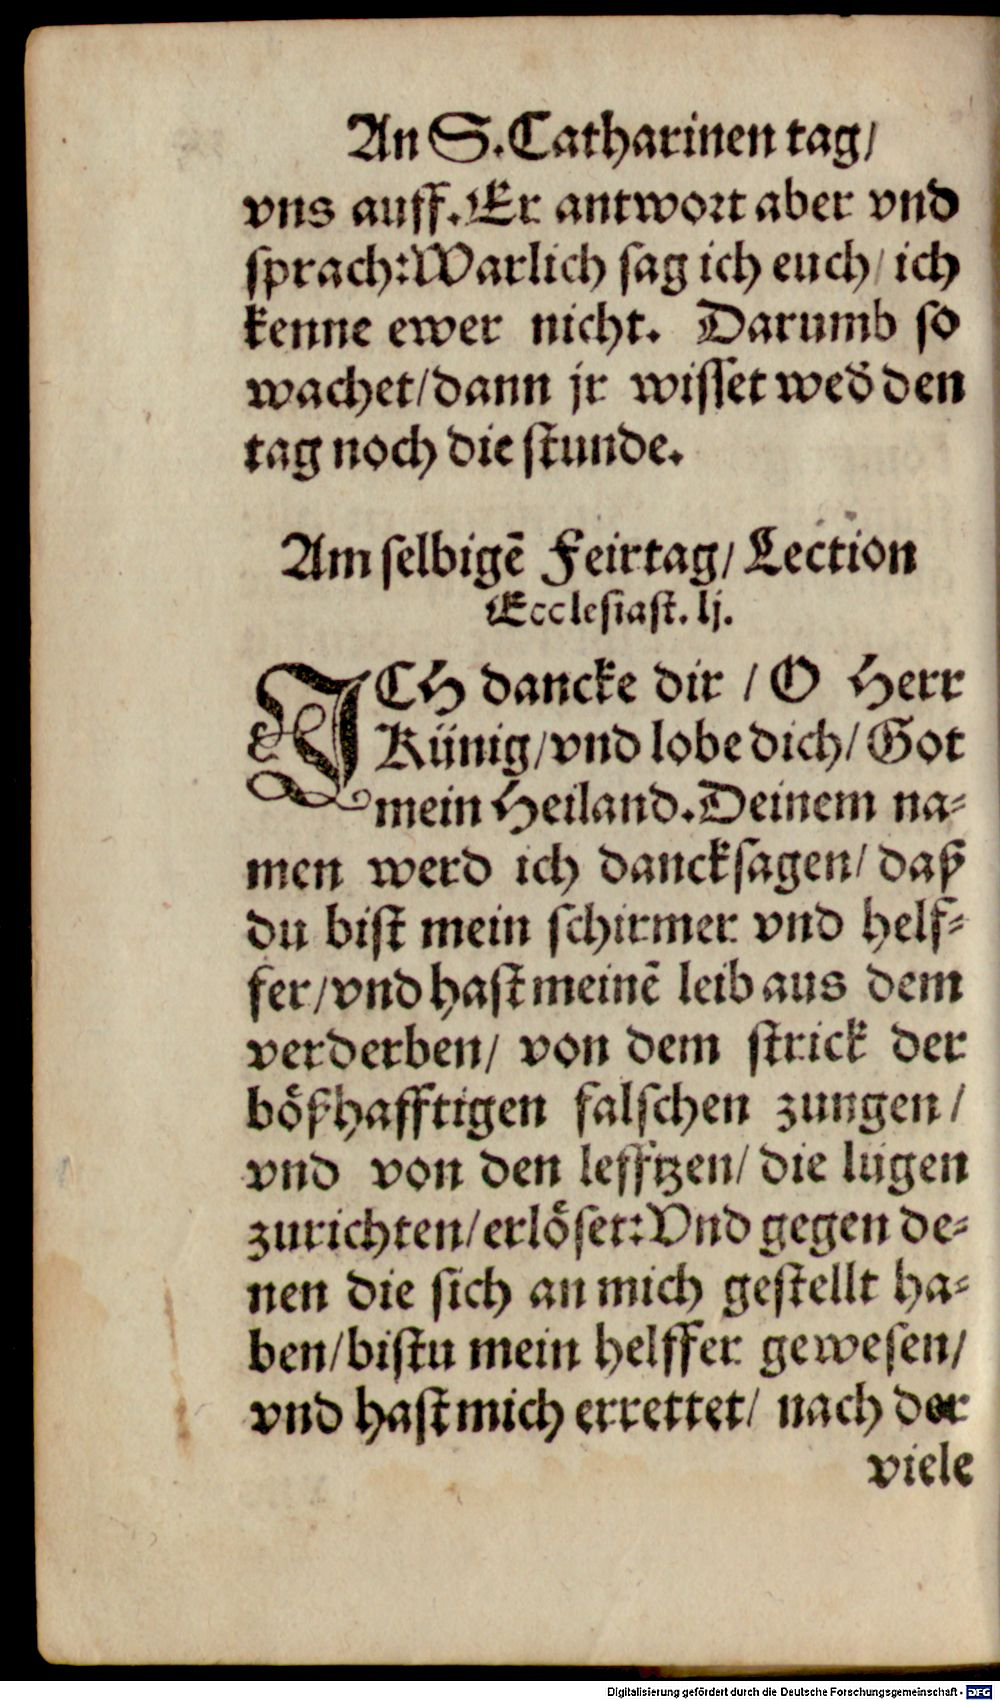 An S. Catharinen tag/
vns auff. Er antwort aber vnd
sprach: Warlich sag ich euch/ ich
kenne ewer nicht. Darumb so
wachet/ dann jr wisset wed̄ den
tag noch die stunde.
Am selbigē Feirtag/ Lection
Ecclesiast. lj.
JCH dancke dir / O Herr
Künig/ vnd lobe dich/ Got
mein Heiland. Deinem na-
men werd ich dancksagen/ daß
du bist mein schirmer vnd helf-
fer/ vnd hast meinē leib aus dem
verderben/ von dem strick der
bößhafftigen falschen zungen/
vnd von den lefftzen/ die lügen
zurichten/ erlöset: Vnd gegen de-
nen die sich an mich gestellt ha-
ben/ bistu mein helffer gewesen/
vnd hast mich errettet/ nach der
viele
Digitalisierung gefördert durch die Deutsche Forschungsgemeinschaft - DFG